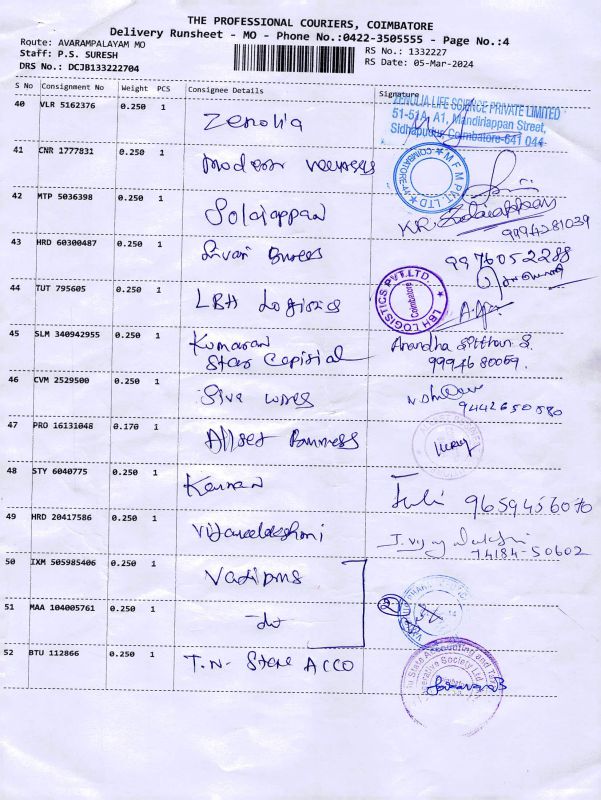 THE PROFESSIONAL COURIERS, COIMBATORE
Delivery Runsheet - MO - Phone No.:0422-3505555 - Page No.:4
Route: AVARAMPALAYAM MO
RS No.: 1332227
Staff: P.S. SURESH
RS Date: 05-Mar-2024
DRS No.: DCJB133222704
S No Consignment No Weight PCS Consignee Details Signature
40 VLR 5162376 0.250 1 Zenolia
ZENOLIA LIFE SCIENCE PRIVATE LIMITED
51-51A, A1, Mandiriappan Street,
Sidhapudur Coimbatore-641 044
41 CNR 1777831 0.250 1
M F M PVT. LTD
COIMBATORE-44
42 MTP 5036398 0.250 1 Solaiappan
9994281039
43 HRD 60300487 0.250 1
9976052288
44 TUT 795605 0.250 1 LBH Logistics
LBH LOGISTICS PVT.LTD.
Coimbatore
45 SLM 340942955 0.250 1 Kumaran
Star Capitial
Anandha
46 CVM 2529500 0.250 1
9442650580
47 PRO 16131048 0.170 1 Allset
48 STY 6040775 0.250 1 Kannan
9659456070
49 HRD 20417586 0.250 1 Vijayalakshmi
74184-50602
50 IXM 505985406 0.250 1
51 MAA 104005761 0.250 1
2
52 BTU 112866 0.250 1 T.N- State ACCO
State Accounting and
Society Ltd